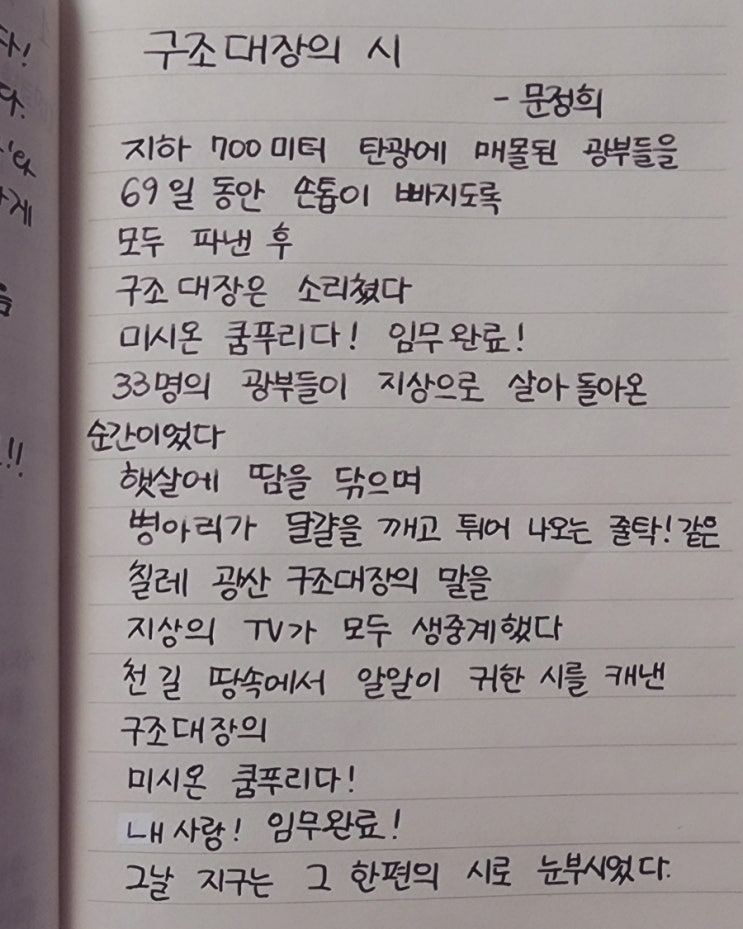 구조대장의 시
- 문정희
지하 700미터 탄광에 매몰된 광부들을
69일 동안 손톱이 빠지도록
모두 파낸 후
구조대장은 소리쳤다
미시온 쿰푸리다! 임무완료!
33명의 광부들이 지상으로 살아 돌아온
순간이었다
햇살에 땀을 닦으며
병아리가 달걀을 깨고 튀어 나오는 줄탁! 같은
칠레 광산 구조대장의 말을
지상의 TV가 모두 생중계했다
천 길 땅속에서 알알이 귀한 시를 캐낸
구조대장의
미시온 쿰푸리다!
내 사랑! 임무완료!
그날 지구는 그 한편의 시로 눈부시었다.